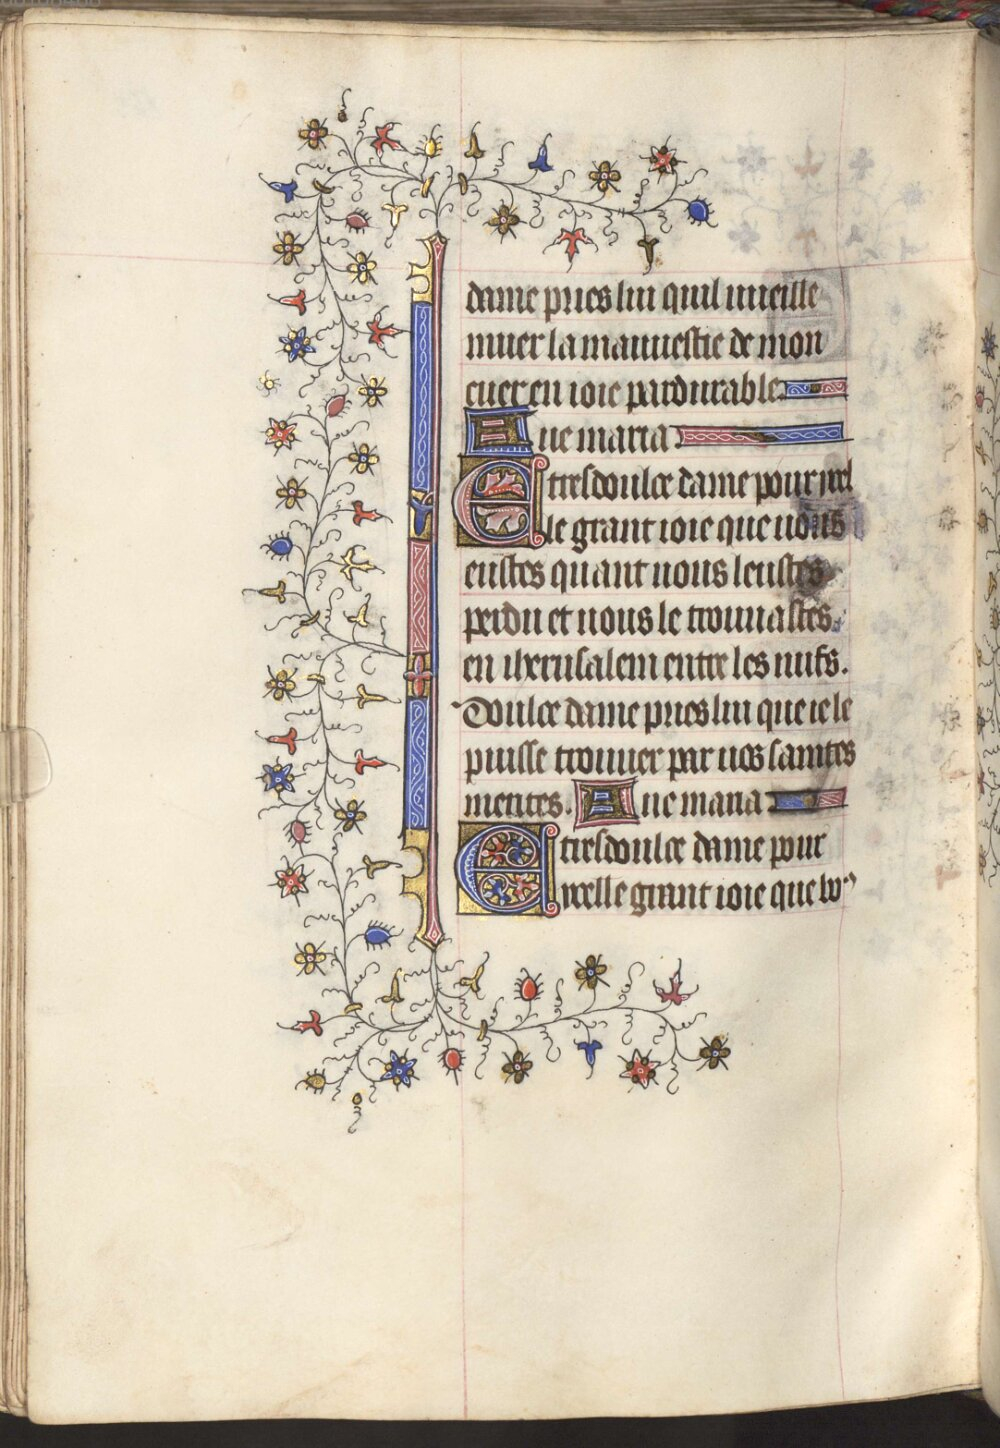 dame pries lui quil vueille
muer la mauuestie de mon
cuer en ioie pardurable
Aue maria
E tresdoulce dame pour ycel
le grant ioie que uous
eustes quant uous leustes
perdu et uous le trouuastes
en iherusalem entre les iuifs.
Doulce dame pries lui que ie le
puisse trouuer par uos saintes
merites. Aue maria
E tresdoulce dame pour
ycelle grant ioie que vo⁹